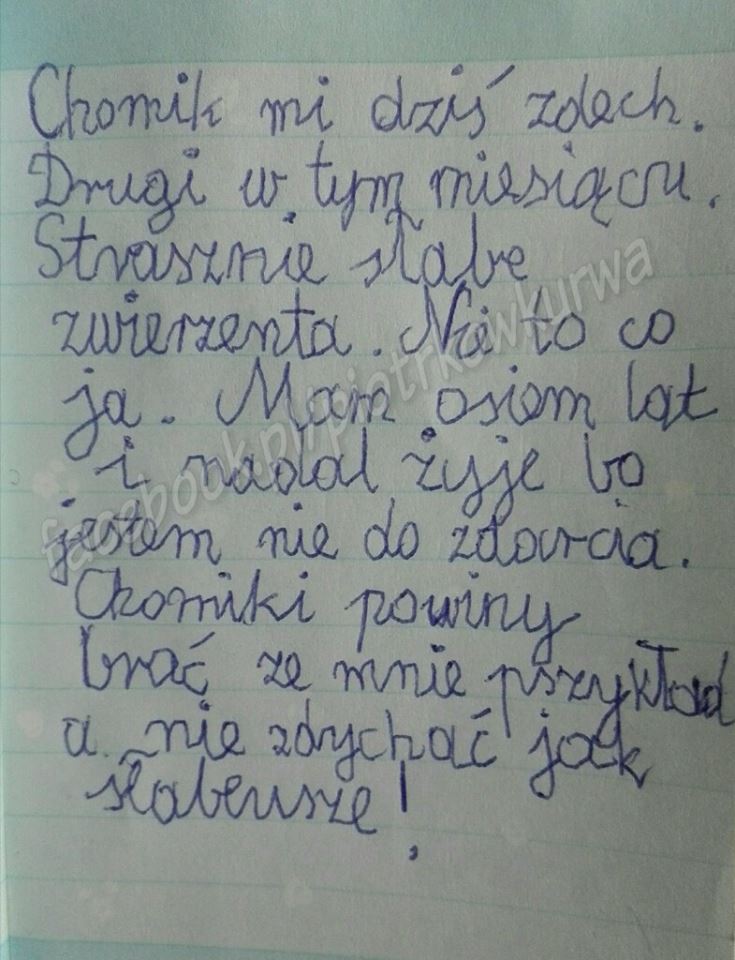 Chomik mi dziś zdech.
Drugi w tym miesiącu.
Strasznie słabe
zwierzenta. Nie to co
ja. Mam osiem lat
i nadal żyje bo
jestem nie do zdarcia.
Chomiki powiny
brać ze mnie pszykład
a nie zdychać jak
słabeusze!
facebook.pl/piotrkawkurwa